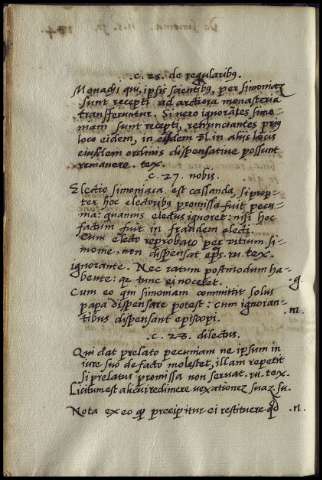 .c. 25. de regularibꝰ.
Monachi qui ipsis scientibus, per simoniaʒ
sunt recepti ad arctiora monasteria
transferuntur. Si uero ignorantes simo-
niam sunt recepti, renunciantes priꝰ
loco eidem, in eisdem ul in aliis locis
eiusdem ordinis dispensatiue possunt
remanere. tex.
.c. 27. nobis.
Electio simoniaca est cassanda, si prop-
ter hoc electoribꝰ promissa fuit pecu-
nia: quamuis electus ignoret: nisi hoc
factum fuit in fraudem electi.
Cum electo reprobato per uitium si-
monie, non dispensat eps. ru. tex.
ignorante. Nec ratum postmodum ha-
bente: qꝛ tunc ei noceret. .g.
Cum eo qui simoniam committit solus
papa dispensare potest: cum ignoran-
tibus dispensant episcopi. .m.
.c. 28. dilectus.
Qui dat prelato pecuniam ne ipsum in
iure suo de facto molestet, illam repetit
si prelatus promissa non seruat. ru. tex.
Licitum est alicui redimere uexationez suaʒ. su.
Nota ex eo ꝙ precipitur ei restituere qd .n.